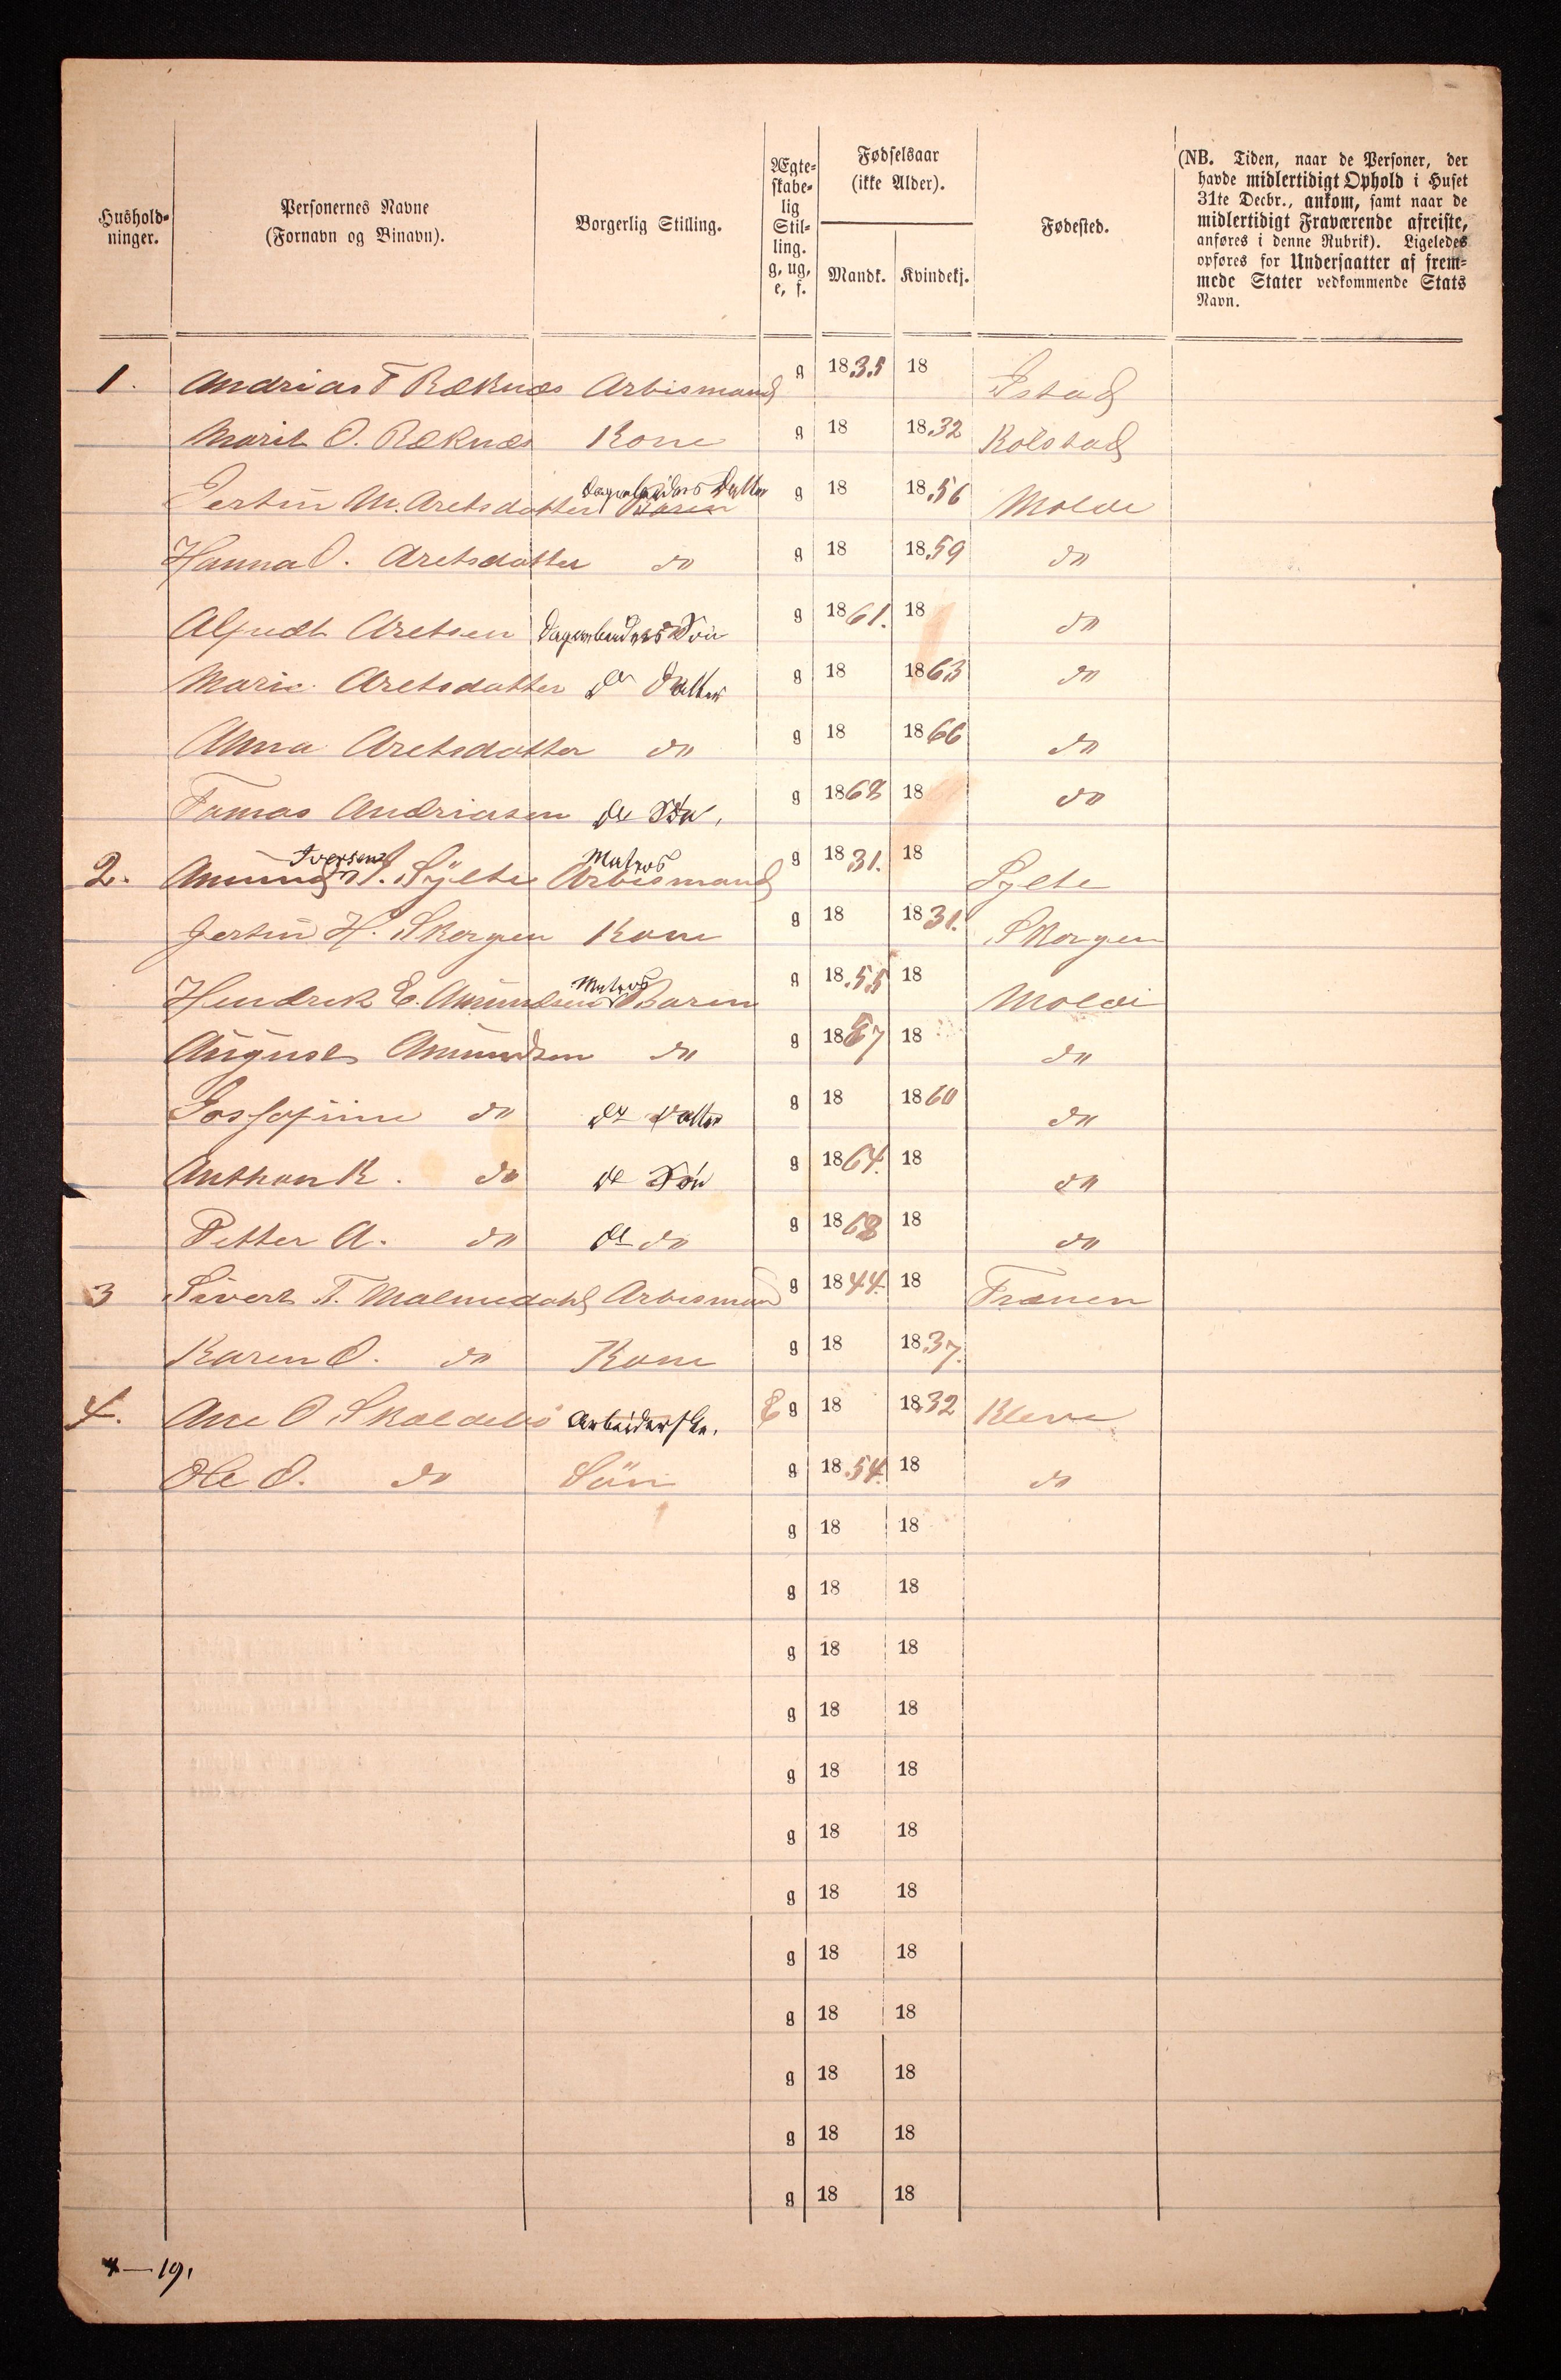 Hushold-
ninger.
Personernes Navne
(Fornavn og Binavn).
Borgerlig Stilling.
Ægte-
skabe-
lig
Stil-
ling.
g, ug,
e, f.
Fødselsaar
(ikke Alder).
Mandk. Kvindekj.
Fødested.
(NB. Tiden, naar de Personer, der
havde midlertidigt Ophold i Huset
31te Decbr., ankom, samt naar de
midlertidigt Fraværende afreiste,
anføres i denne Rubrik). Ligeledes
opføres for Undersaatter af frem-
mede Stater vedkommende Stats
Navn.
1. Andrias T Ræknæs Arbismand g 1835 18 Istad
Marit O. Ræknæs Kone g 18 1832 Kolstad
Jertin M. Aretsdatter Daglejders Datter g 18 1856 Molde
Hanna O. Aretsdatter do g 18 1859 do
Alfredt Aretsen Søn g 1861. 18 do
Marie Aretsdatter do Datter g 18 1863 do
Anna Aretsdatter do g 18 1866 do
Tomas Andriasen do Søn, g 1868 18 do
Iversen Matros
2. Amund I. Sÿlte Arbismand g 1831. 18 Sylte
Jertin H. Skorgen Kone g 18 1831. Skorgen
Matros
Hendrek E. Amundsen Baren g 1855 18 Molde
August Amundsen do g 1857 18 do
Jossefine do do Datter g 18 1860 do
Anthon K. do do Søn g 1864. 18 do
Petter A. do do do g 1868 18 do
3 Sivert T. Malmedahl Arbismand g 1844. 18 Frænen
Karen O. do Kone g 18 1837.
4. Ane O Skaldebö Arbeiderske. E g 18 1832 Kleve
Ole O. do Sön g 1854. 18 do
g 18 18
g 18 18
g 18 18
g 18 18
g 18 18
g 18 18
g 18 18
g 18 18
g 18 18
g 18 18
g 18 18
g 18 18
4—19.